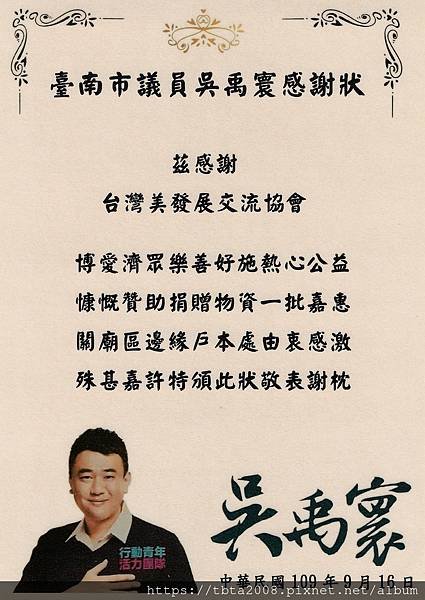 臺南市議員吳禹寰感謝狀
茲感謝
台灣美發展交流協會
博愛濟眾樂善好施熱心公益
慷慨贊助捐贈物資一批嘉惠
關廟區邊緣戶本處由衷感激
殊甚嘉許特頒此狀敬表謝枕
行動青年
活力團隊
吳禹寰
中華民國 109 年 9 月 16 日
https://tbta2008.pixnet.net/album